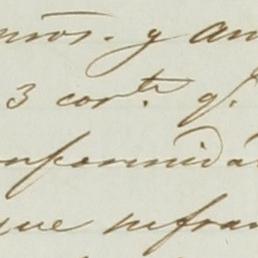 mros. y an
3 corte. q.
nformida
que refran